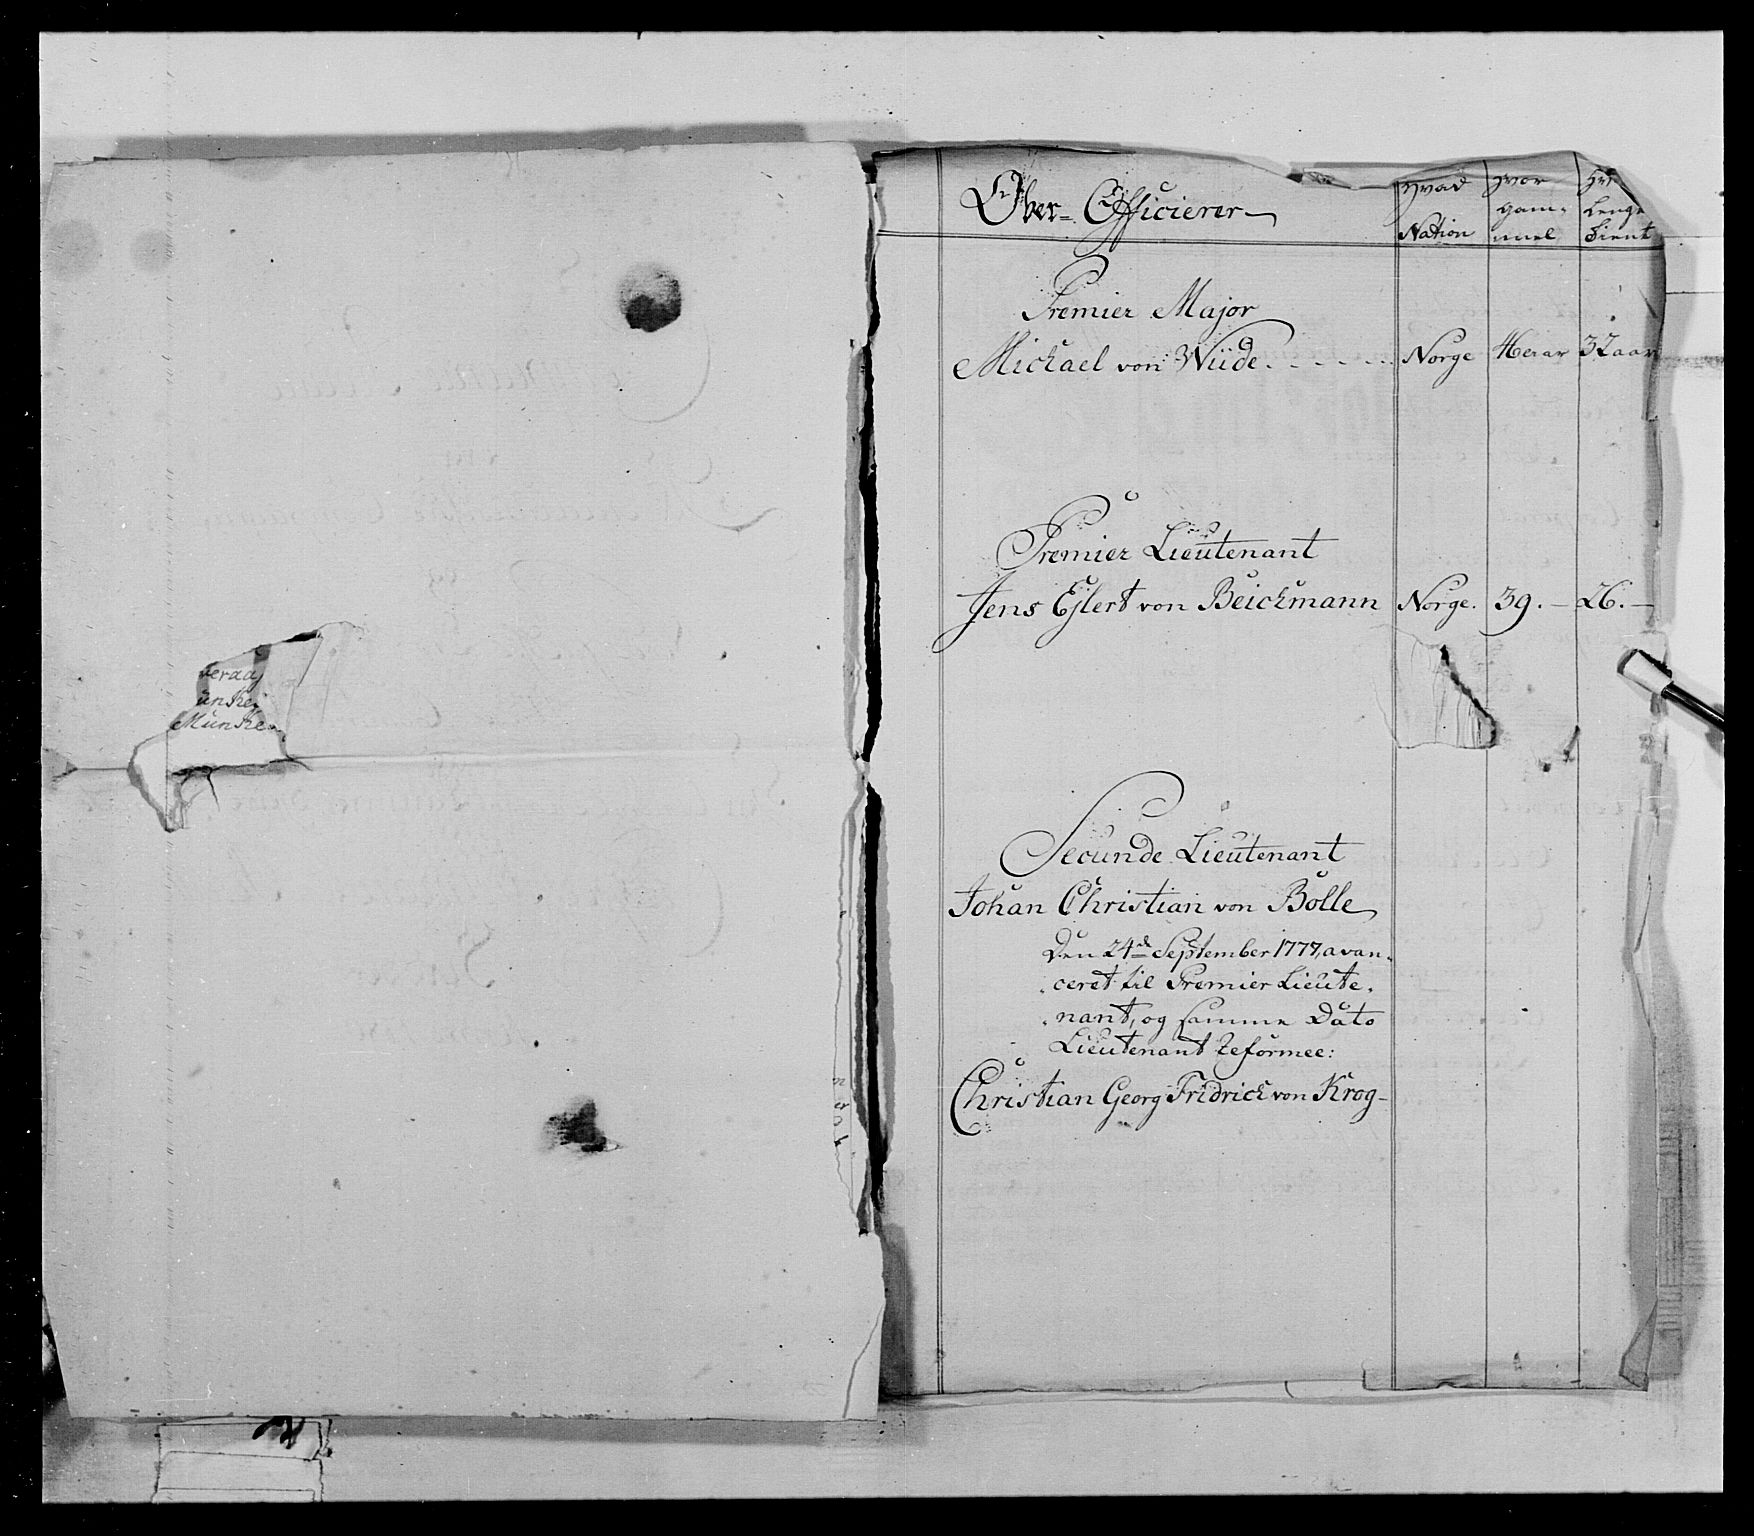 ünke
Münke
Ober= Officierer
Hvad
Nation
Hvor
gam=
mel
Lenge
Tient
Premier Major
Michael von Wiide. - - - - - Norge 32 aar
Premier Lieutenant
Jens Ejlert von Beichmann Norge. 39. — 26. —
Secunde Lieutenant
Johan Christian von Bolle
Den 24de September 1777, avan=
ceret til Premier Lieute=
nant, og samme Dato
Lieutenant Reformee:
Christian Georg Fridrich von Krog-